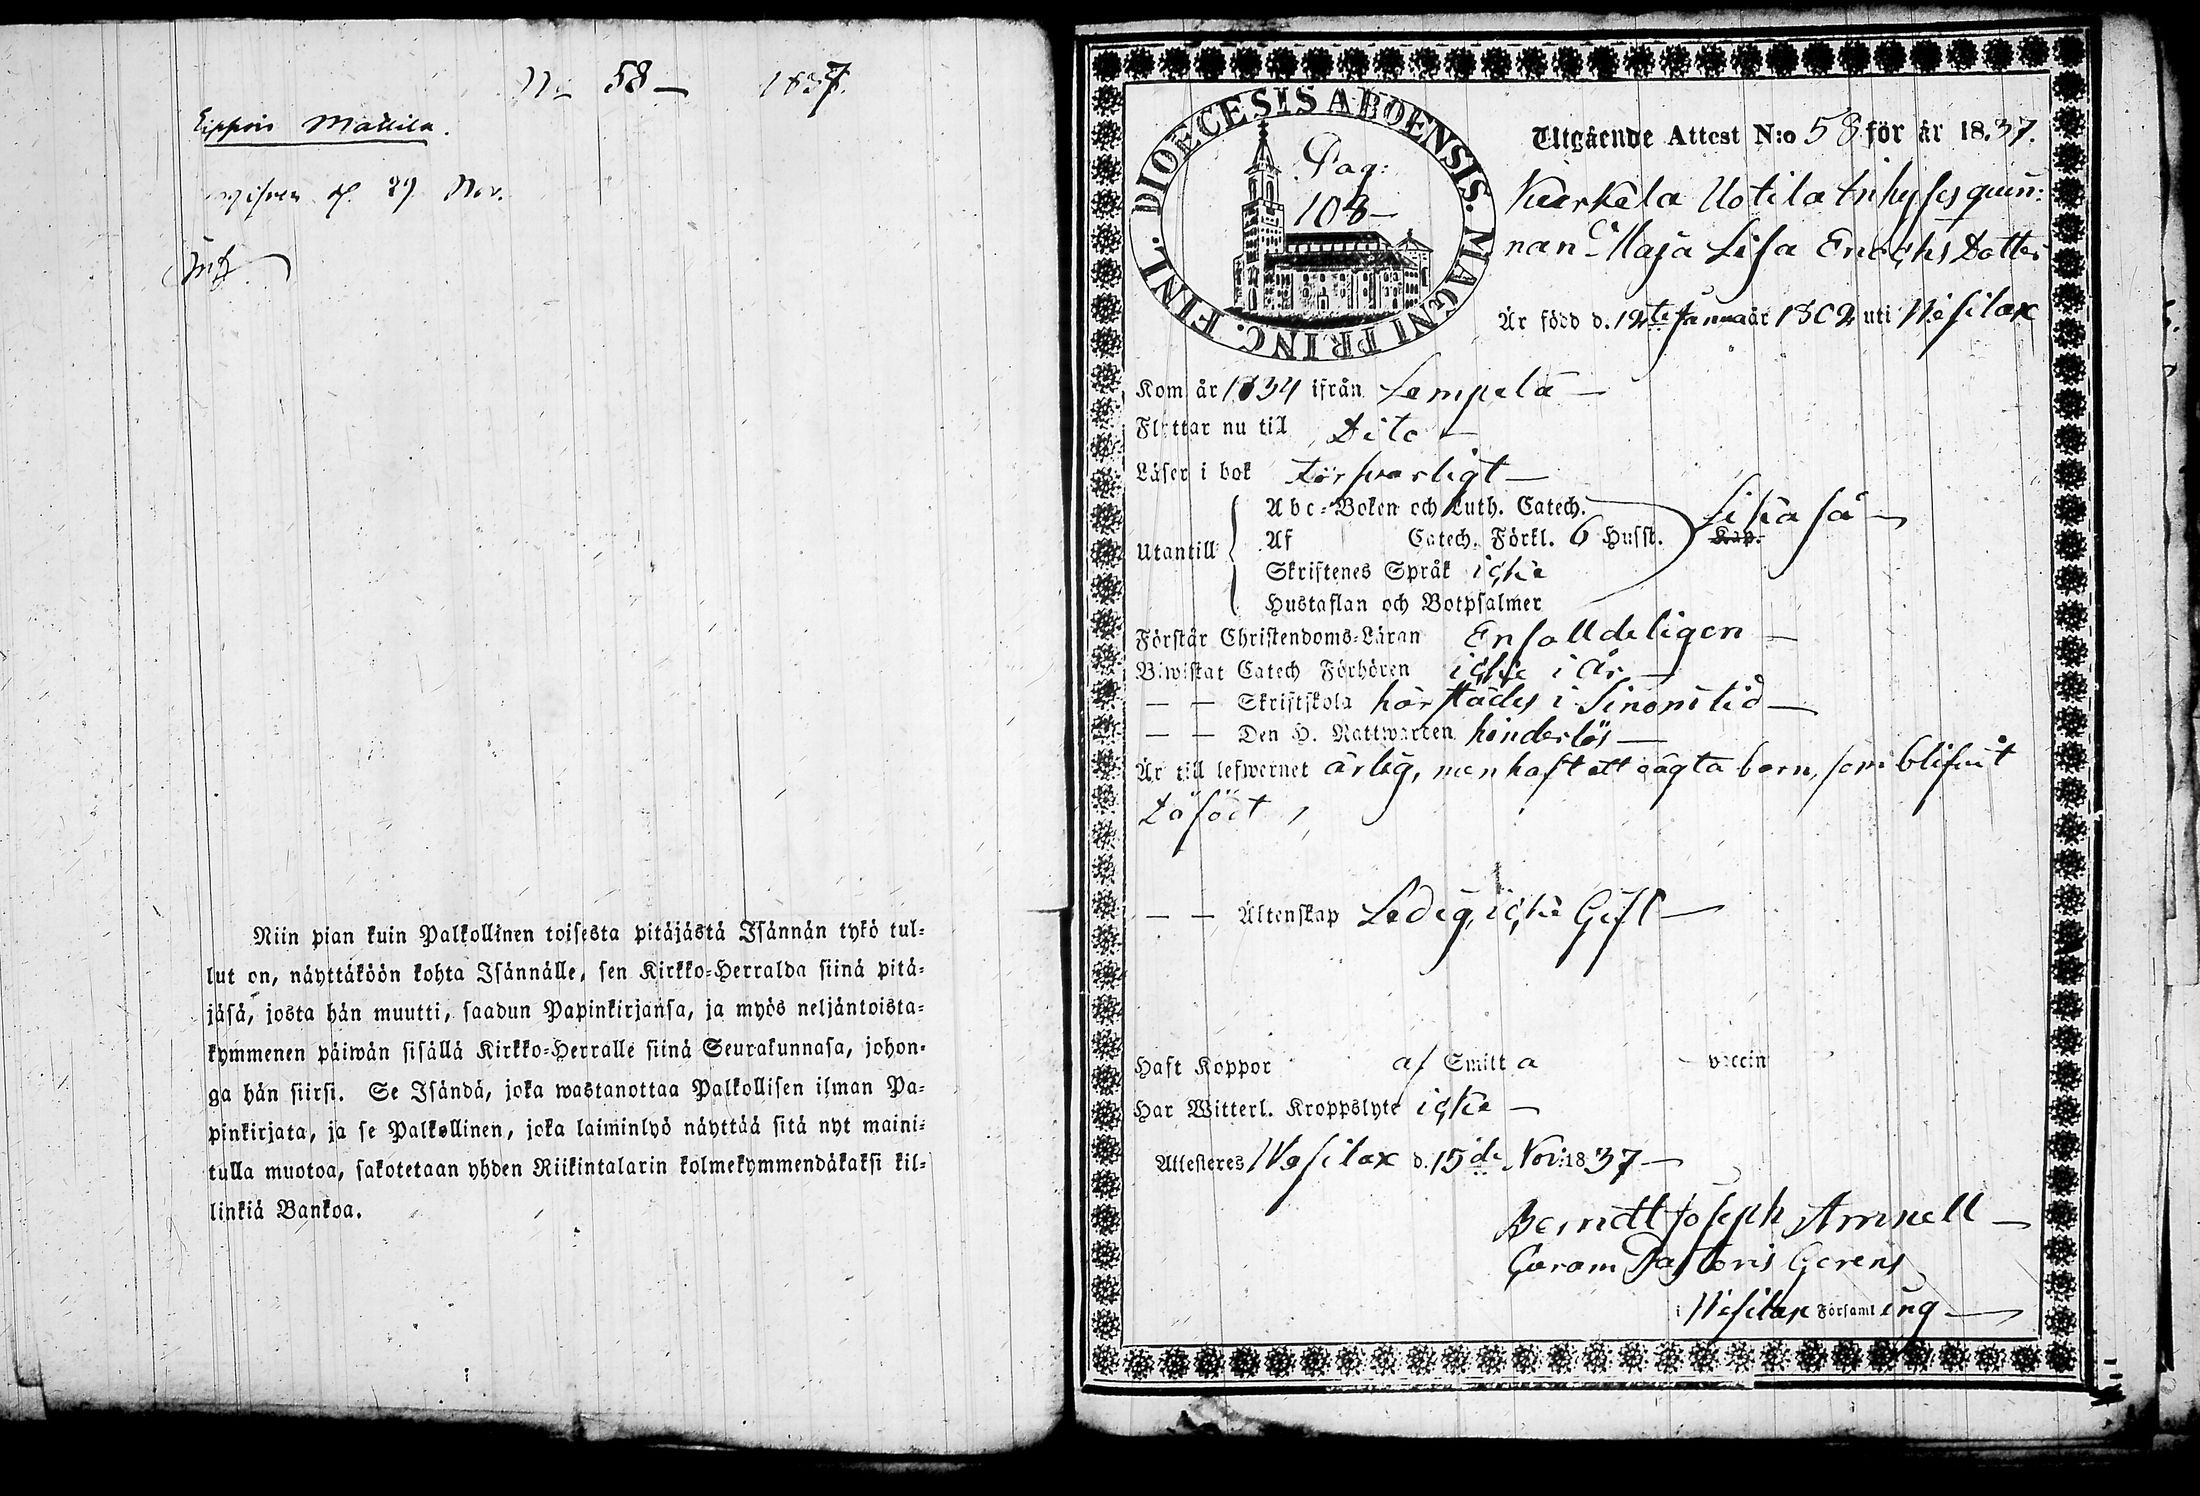 No 58 – 1837.
Mattila.
d. 29 Nov.
Niin pian kuin Palkollinen toisesta pitäjästä Isännän tykö tul-
lut on, näyttäköön kohta Isännälle, sen Kirkko-Herralda siinä pitä-
jäsä, josta hän muutti, saadun Papinkirjansa, ja myös neljäntoista-
kymmenen päiwän sisällä Kirkko-Herralle siinä Seurakunnasa, johon-
ga hän siirsi. Se Isändä, joka wastanottaa Palkollisen ilman Pa-
pinkirjata, ja se Palkollinen, joka laiminlyö näyttää sitä nyt maini-
tulla muotoa, sakotetaan yhden Riikintalarin kolmekymmendäkaksi kil-
linkiä Bankoa.
DIOECESIS ABOENSIS. MAGNI PRINC. FINL.
Pag:
108–
Utgående Attest N:o 58 för år 1837.
Kurkela Uotila Inhysesquin-
nan Maja Lisa Enochs Dotter
Är född d. 12te Januaär 1802 uti Wesilax
Kom år 1834 ifrån Lempela –
Flyttar nu till Dito –
Läser i bok försvarligt –
Utantill
Abc-Boken och Luth. Catech.
Af Catech. Förkl. 6 Hufst. Kap.
Lika så –
Skriftenes Språk icke
Hustaflan och Botpsalmer
Förstår Christendoms-Läran Enfalldeligen –
Biwistat Catech Förhören icke i år –
– – Skriftskola härstädes i sinom tid –
– – Den H. Nattwarden hinderlös –
Är till lefwernet ärlig, men haft ett oägta barn, som blifvit
döfödt,
– – Äktenskap Ledig, icke Gift –
Haft Koppor af Smitt a vaccin
Har Witterl. Kroppslyte icke –
Attesteres Wesilax d. 15de Nov: 1837 –
Berndt Joseph Amnell –
Curam Pastoris Gerens
i Wesilax Församling –